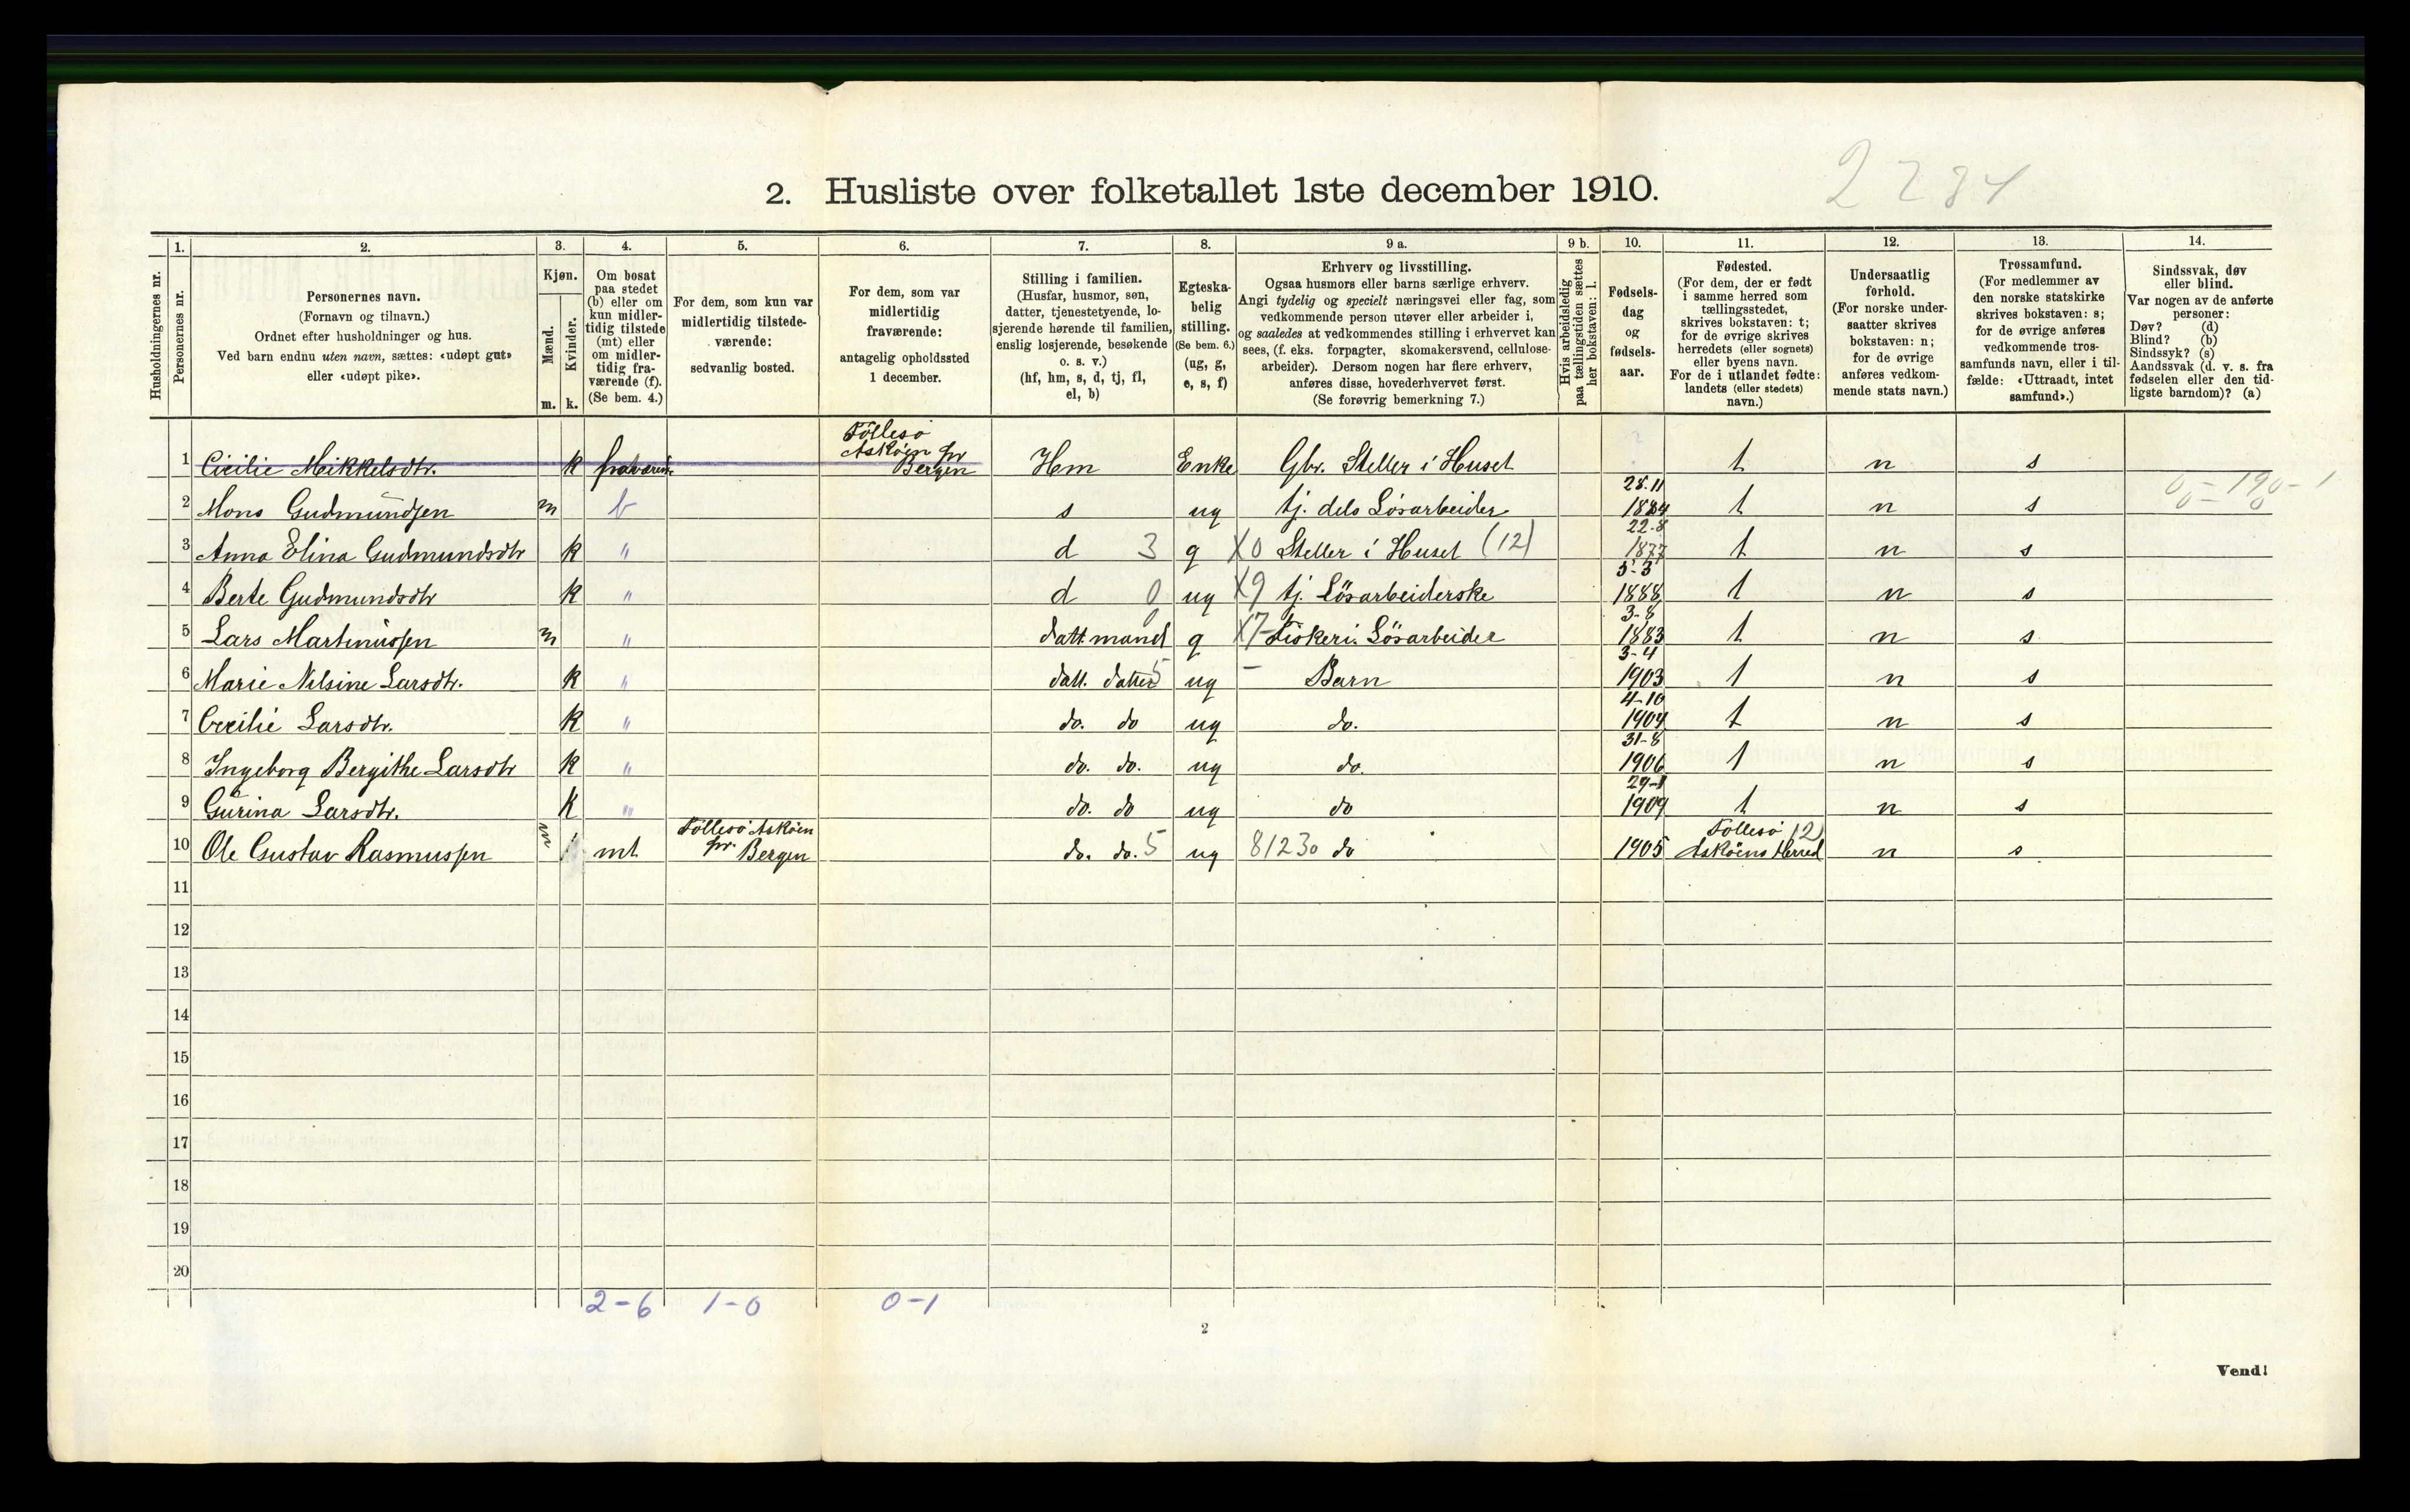 2284
2. Husliste over folketallet 1ste december 1910.
Husholdningernes nr.
1. Personernes nr.
2. Personernes navn.
(Fornavn og tilnavn.)
Ordnet efter husholdninger og hus.
Ved barn endnu uten navn, sættes: «udøpt gut»
eller «udøpt pike».
3. Kjøn.
Mænd. Kvinder.
m. k.
4. Om bosat
paa stedet
(b) eller om
kun midler-
tidig tilstede
(mt) eller
om midler-
tidig fra-
værende (f).
(Se bem. 4.)
5. For dem, som kun var
midlertidig tilstede-
værende:
sedvanlig bosted.
6. For dem, som var
midlertidig
fraværende:
antagelig opholdssted
1 december.
7. Stilling i familien.
(Husfar, husmor, søn,
datter, tjenestetyende, lo-
sjerende hørende til familien,
enslig losjerende, besøkende
o. s. v.)
(hf, hm, s, d, tj, fl,
el, b)
8. Egteska-
belig
stilling.
(Se bem. 6.)
(ug, g,
e, s, f)
9 a. Erhverv og livsstilling.
Ogsaa husmors eller barns særlige erhverv.
Angi tydelig og specielt næringsvei eller fag, som
vedkommende person utøver eller arbeider i,
og saaledes at vedkommendes stilling i erhvervet kan
sees, (f. eks. forpagter, skomakersvend, cellulose-
arbeider). Dersom nogen har flere erhverv,
anføres disse, hovederhvervet først.
(Se forøvrig bemerkning 7.)
9 b. Hvis arbeidsledig
paa tællingstiden sættes
her bokstaven: l.
10. Fødsels-
dag
og
fødsels-
aar.
11. Fødested.
(For dem, der er født
i samme herred som
tællingsstedet,
skrives bokstaven: t;
for de øvrige skrives
herredets (eller sognets)
eller byens navn.
For de i utlandet fødte:
landets (eller stedets)
navn.)
12. Undersaatlig
forhold.
(For norske under-
saatter skrives
bokstaven: n;
for de øvrige
anføres vedkom-
mende stats navn.)
13. Trossamfund.
(For medlemmer av
den norske statskirke
skrives bokstaven: s;
for de øvrige anføres
vedkommende tros-
samfunds navn, eller i til-
fælde: «Uttraadt, intet
samfund».)
14. Sindssvak, døv
eller blind.
Var nogen av de anførte
personer:
Døv? (d)
Blind? (b)
Sindssyk? (s)
Aandssvak (d. v. s. fra
fødselen eller den tid-
ligste barndom)? (a)
1 Cicilie Mikkelsdtr. k Föllesö Askøen pr Bergen Hm Enke Gbr. Steller i Huset t n s
2 Mons Gudmundsen m b s ug tj. dels Løsarbeider 28.11 1884 t n s
3 Anna Elina Gudmundsdtr k " d 3 g X0 Steller i Huset (12) 22-8 1877 t n s
4 Berte Gudmundsdtr k " d 0 ug X9 tj. Løsarbeiderske 5-3 1888 t n s
5 Lars Martinussen m " datt mand g X7 Fiskeri. Løsarbeider 3-8 1883 t n s
6 Marie Nilsine Larsdtr. k " datt. datter 5 ug – Barn 3-4 1903 t n s
7 Cecilie Larsdtr. k " do. do ug do. 4-10 1904 t n s
8 Ingeborg Bergithe Larsdtr k " do. do. ug do. 31-8 1906 t n s
9 Gurina Larsdtr. k " do. do ug do 29-1 1909 t n s
10 Ole Gustav Rasmussen m mt Föllesö Askøen pr. Bergen do. do. 5 ug 81230 do 1905 Föllesö (2) Askøens Herred n s
11
12
13
14
15
16
17
18
19
20
2-6 1-0 0-1
2
Vend!